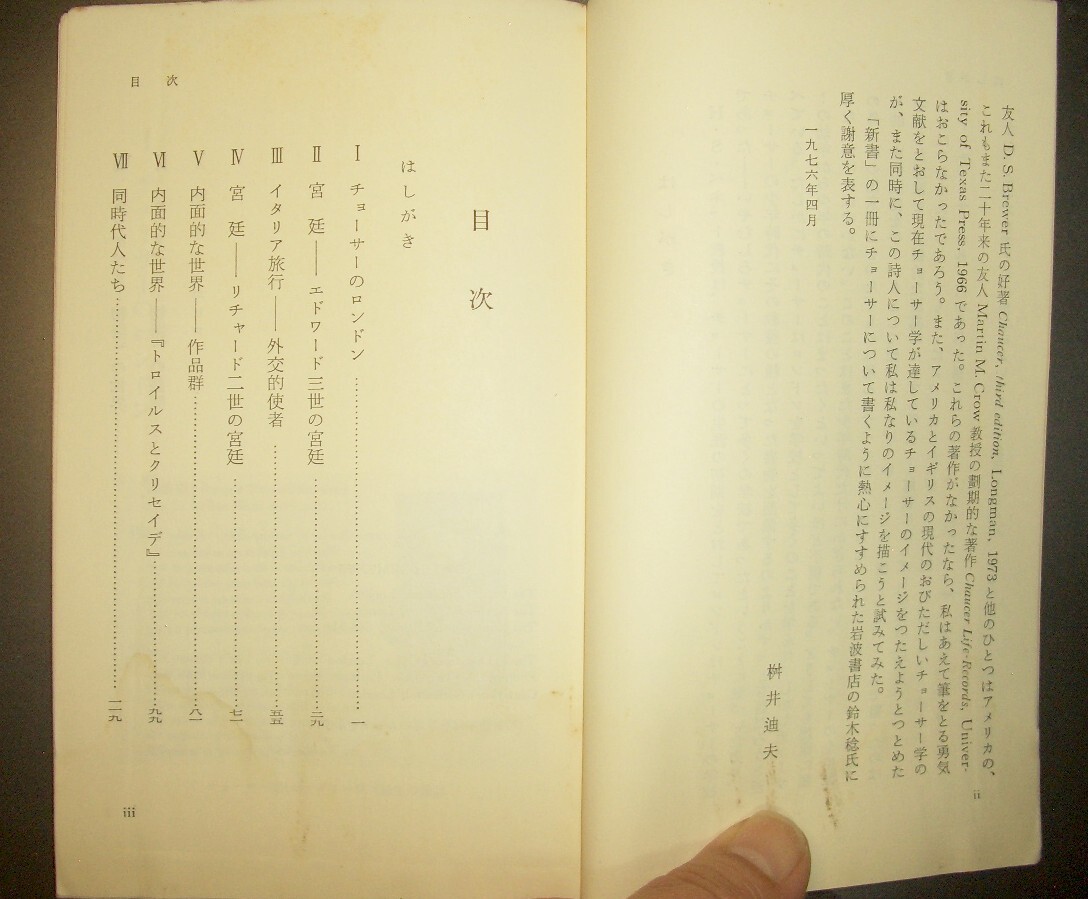 友人 D. S. Brewer 氏の好著 Chaucer, third edition, Longman, 1973 と他のひとつはアメリカの、
これもまた二十年来の友人 Martin M. Crow 教授の劃期的な著作 Chaucer Life-Records, Univer-
sity of Texas Press, 1966 であった。これらの著作がなかったなら、私はあえて筆をとる勇気
はおこらなかったであろう。また、アメリカとイギリスの現代のおびただしいチョーサー学の
文献をとおして現在チョーサー学が達しているチョーサーのイメージをつたえようとつとめた
が、また同時に、この詩人について私は私なりのイメージを描こうと試みてみた。
「新書」の一冊にチョーサーについて書くように熱心にすすめられた岩波書店の鈴木稔氏に
厚く謝意を表する。
一九七六年四月
桝井迪夫
ii
目次
目次
はしがき
Ⅰ チョーサーのロンドン……一
Ⅱ 宮廷――エドワード三世の宮廷……二九
Ⅲ イタリア旅行――外交的使者……五五
Ⅳ 宮廷――リチャード二世の宮廷……七一
Ⅴ 内面的な世界――作品群……八一
Ⅵ 内面的な世界――『トロイルスとクリセイデ』……九九
Ⅶ 同時代人たち……一一九
iii